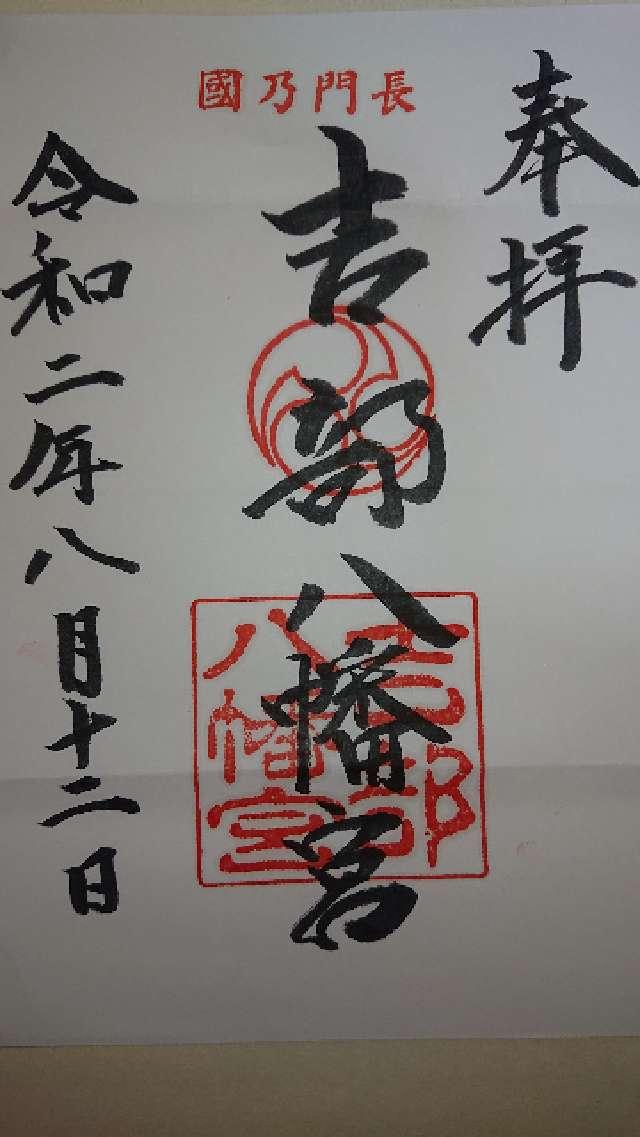 奉拝
國乃門長
吉部八幡宮
吉部
八幡宮
令和二年八月十二日